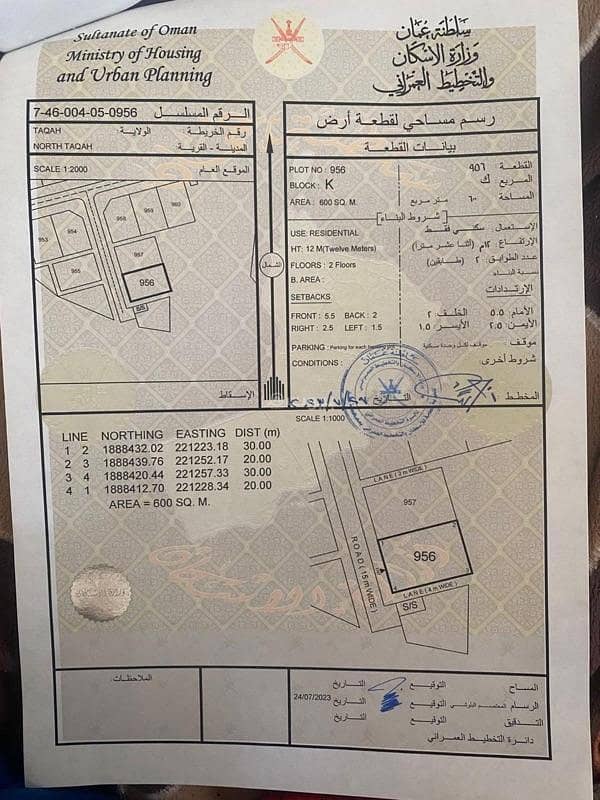 Sultanate of Oman
Ministry of Housing
and Urban Planning
سلطنة عمان
وزارة الإسكان
والتخطيط العمراني
7-46-004-05-0956 الرقم المسلسل
TAQAH الولاية: رقم الخريطة:
NORTH TAQAH المدينة - القرية:
SCALE 1:2000 الموقع العام
953
954
955
958
959
960
957
956
S/S
الإسقاط
الشمال
رسم مساحي لقطعة أرض
بيانات القطعة
PLOT NO : 956
القطعة : ٩٥٦
BLOCK : K
المربع : ك
AREA : 600 SQ. M.
المساحة : ٦٠٠ متر مربع
شروط البناء
USE: RESIDENTIAL
الإستعمال: سكني فقط
HT: 12 M(Twelve Meters)
الإرتفاع: ١٢م (أثنا عشر مترا)
FLOORS : 2 Floors
عدد الطوابق: ٢ (طابقين)
B. AREA :
نسبة البناء:
SETBACKS
الإرتدادات
FRONT : 5.5 BACK : 2
الأمام: ٥.٥ الخلف: ٢
RIGHT : 2.5 LEFT : 1.5
الأيمن: ٢.٥ الأيسر: ١.٥
PARKING : Parking for each
موقف: موقف لكل وحدة سكنية
CONDITIONS :
شروط أخرى:
المخطط: التاريخ
SCALE 1:1000
LINE NORTHING EASTING DIST (m)
1 2 1888432.02 221223.18 30.00
2 3 1888439.76 221252.17 20.00
3 4 1888420.44 221257.33 30.00
4 1 1888412.70 221228.34 20.00
AREA = 600 SQ. M.
957
956
ROAD (15m WIDE)
LANE (4m WIDE)
S/S
الملاحظات:
المساح التوقيع التاريخ
الرسام التوقيع التاريخ 24/07/2023
التدقيق التوقيع التاريخ
دائرة التخطيط العمراني